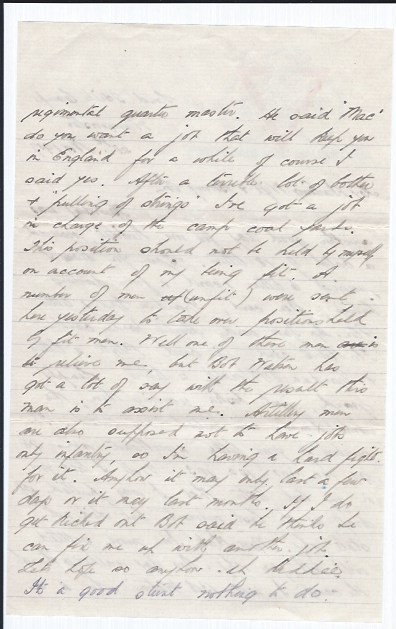 regimental quarter master. He said "Mac"
do you want a job that will keep you
in England for a while of course I
said yes. After a terrible lot of bother
+ "pulling of strings" I've got a job
in charge of the camp coal
This position should not be held by myself
on account of my being fit. A
number of men (unfit) were sent
here yesterday to take over positions held
by fit men. Well one of these men is
to relieve me, but Bob has
got a lot of say with the result this
man is to assist me. Artillery men
are also supposed not to have jobs
only infantry, so I'm having a hard fight
for it. Anyhow it may only last a few
days or it may last months. If I do
get kicked out Bob said he thinks he
can fix me up with another job.
Let's hope so anyhow eh
It's a good stunt nothing to do.